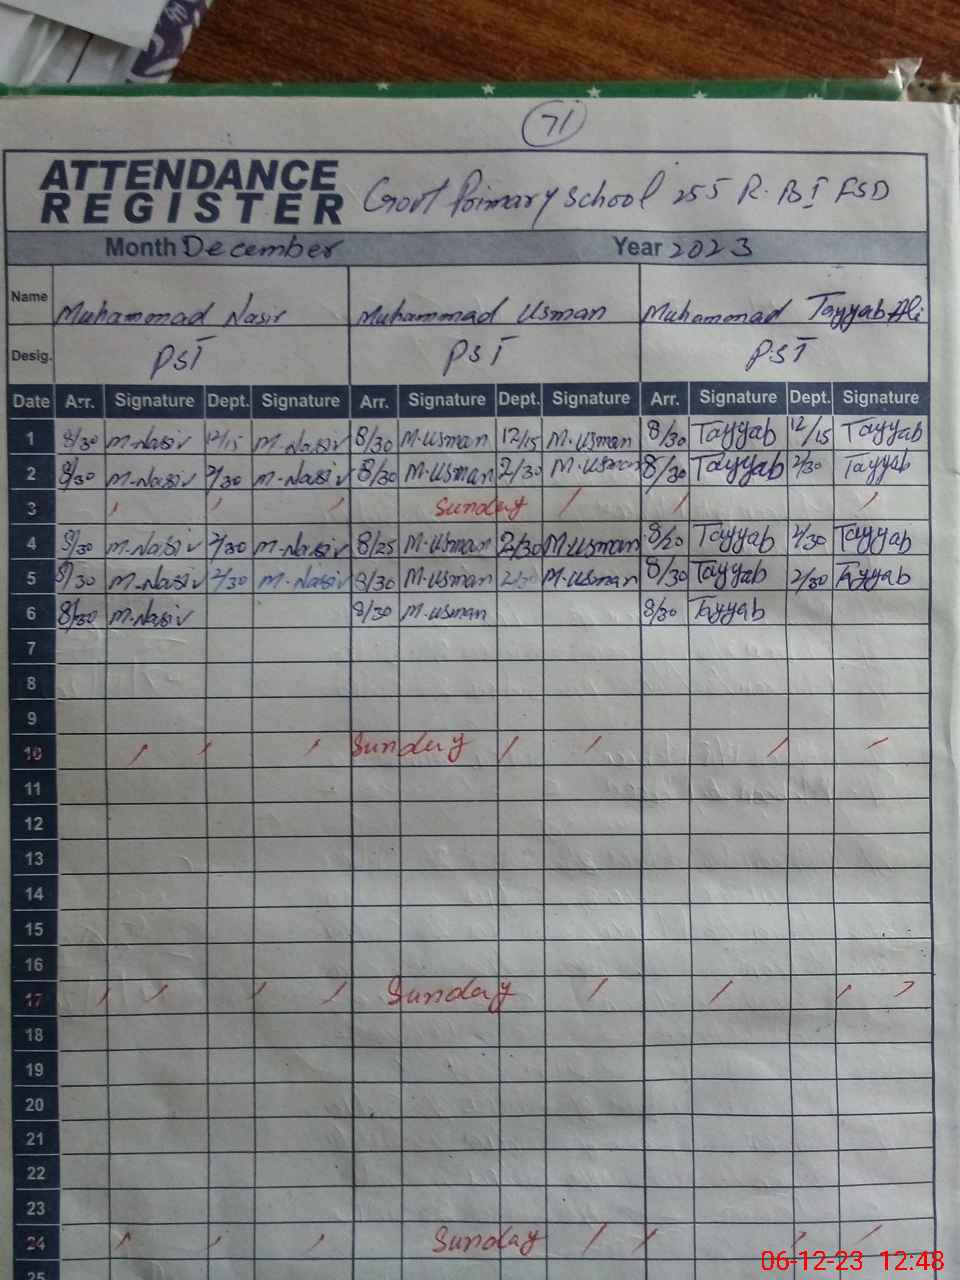 71
ATTENDANCE
REGISTER
Govt Primary School 255 R.B I FSD
Month December Year 2023
Name Muhammad Nasir Muhammad Usman Muhammad Tayyab Ali
Desig. PST PST PST
Date Arr. Signature Dept. Signature Arr. Signature Dept. Signature Arr. Signature Dept. Signature
1 8/30 M.Nasir 12/15 M.Nasir 8/30 M.Usman 12/15 M.Usman 8/30 Tayyab 12/15 Tayyab
2 8/30 M.Nasir 2/30 M.Nasir 8/30 M.Usman 2/30 M.Usman 8/30 Tayyab 2/30 Tayyab
3 Sunday
4 8/30 M.Nasir 2/30 M.Nasir 8/25 M.Usman 2/30 M.Usman 8/20 Tayyab 2/30 Tayyab
5 8/30 M.Nasir 2/30 M.Nasir 8/30 M.Usman 2/30 M.Usman 8/30 Tayyab 2/30 Tayyab
6 8/30 M.Nasir 8/30 M.Usman 8/30 Tayyab
7
8
9
10 Sunday
11
12
13
14
15
16
17 Sunday
18
19
20
21
22
23
24 Sunday
25
06-12-23 12:48